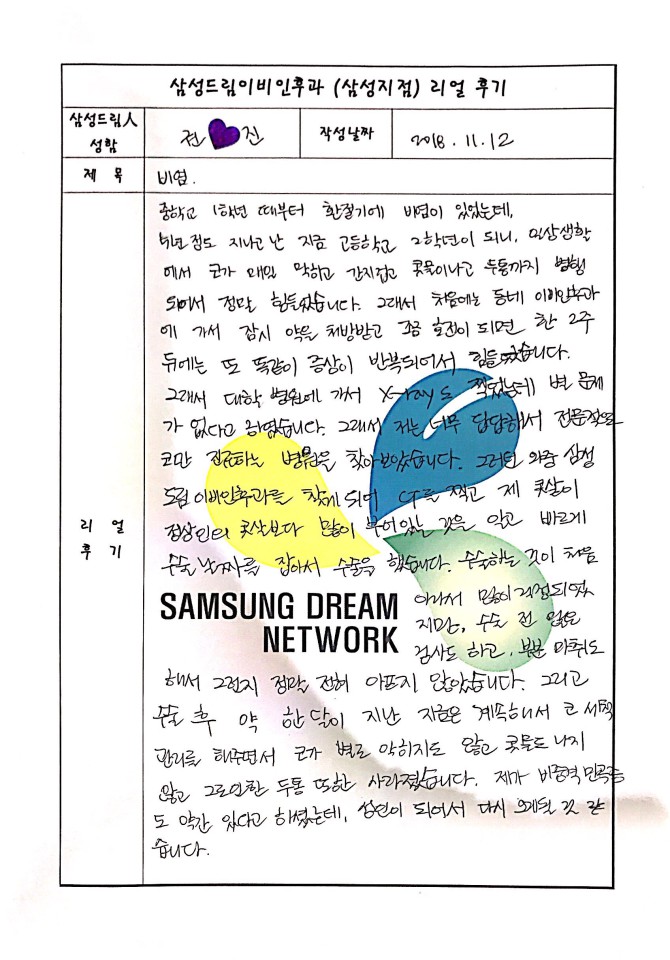 삼성드림이비인후과 (삼성지점) 리얼 후기
삼성드림人 성함
전 진
작성날짜
2018. 11. 12
제 목
비염.
리 얼 후 기
중학교 1학년 때부터 환절기에 비염이 있었는데,
정도 지나고 난 지금 고등학교 2학년이 되니, 일상생활
에서 코가 매일 막히고 간지럽고 콧물이나고 두통까지 병행
되어서 정말 힘들었습니다. 그래서 처음에는 동네 이비인후과
에 가서 잠시 약을 처방받고 조금 호전이 되면 한 2주
뒤에는 또 똑같이 증상이 반복되어서 힘들었습니다.
그래서 대학 병원에 가서 X-ray도 찍었는데 별 문제
가 없다고 하였습니다. 그래서 저는 너무 답답해서 전문적으로
코만 진료하는 병원을 찾아보았습니다. 그러던 와중 삼성
드림이비인후과를 찾게 되어 CT를 찍고 제 콧살이
정상인의 콧살보다 많이 부어있는 것을 알고 바르게
수술날짜를 잡아서 수술을 했습니다. 수술하는 것이 처음
이라서 많이 걱정되었
지만, 수술 전 검
사도 하고, 부분 마취도
SAMSUNG DREAM
NETWORK
해서 그런지 정말 전혀 아프지 않았습니다. 그리고
수술 후 약 한달이 지난 지금은 계속해서 코 세척
관리를 해주면서 코가 별로 막히지도 않고 콧물도 나지
않고 그로인한 두통 또한 사라졌습니다. 제가 비중격 만곡증
도 약간 있다고 하셨는데, 성인이 되어서 다시 오게될 것 같
습니다.